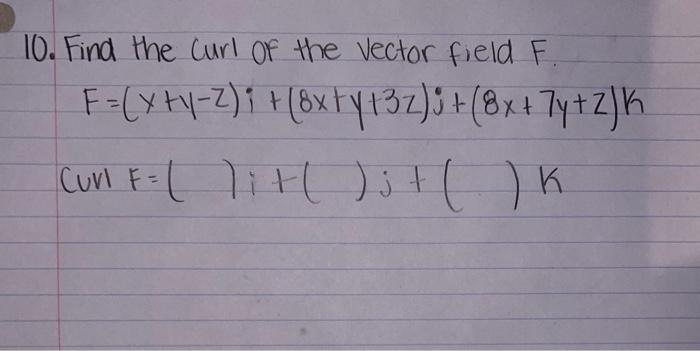 10. Find the Curl of the Vector field F.
F=(x+y-z)i+(8x+y+3z)j+(8x+7y+z)k
Curl F=( )i+( )j+( )k